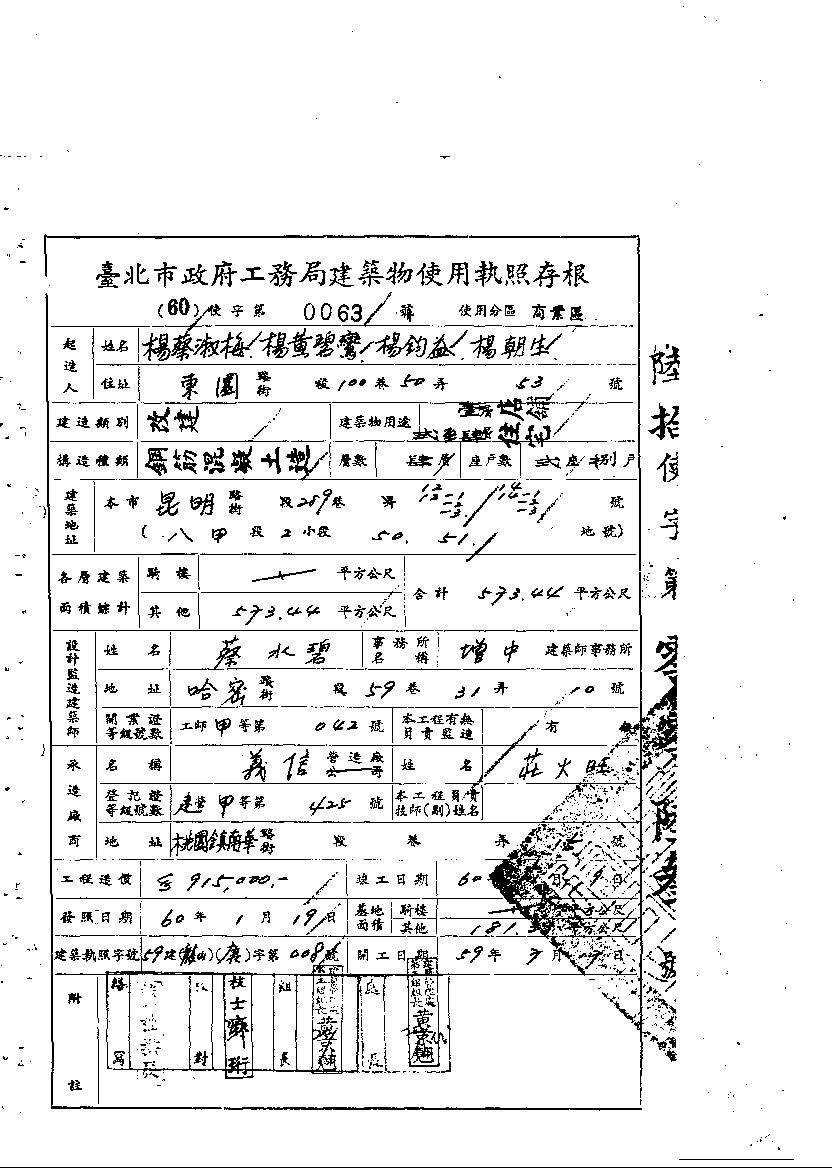 臺北市政府工務局建築物使用執照存根
(60)使字第 0063 號 使用分區 商業區
起造人 姓名 楊蔡淑梅 楊黃碧鸞 楊鈞益 楊朝生
住址 東園 路街 段100巷50弄 53 號
建造類別 改建 建築物用途 店舖 住宅
構造種類 鋼筋混凝土造 層數 肆層 座戶數 貳座捌戶
建築地址 本市 昆明 路街 段289巷 弄 號
(八甲段2小段 50. 51. 地號)
各層建築面積總計 騎樓 平方公尺 合計 573.44 平方公尺
其他 573.44 平方公尺
設計監造建築師 姓名 蔡水碧 事務所名稱 增中 建築師事務所
地址 哈密 路街 段59巷31弄 10號
開業證等級號數 工師甲等第 042 號 本工程有無負責監造 有
承造廠商 名稱 義信 營造廠公司 姓名 莊火旺
登記證等級號數 建營甲等第 425 號 本工程負責技師(副)姓名
地址 桃園鎮南華 路街 段 巷 弄 號
工程造價 915,000.- 竣工日期 60
發照日期 60年1月19日 基地面積 騎樓 平方公尺
其他 181. 平方公尺
建築執照字號 59建( )( )字第008 號 開工日期 59年 月 日
附註 繕寫 校對 組長 處長
陸拾使字第零零陸叁號